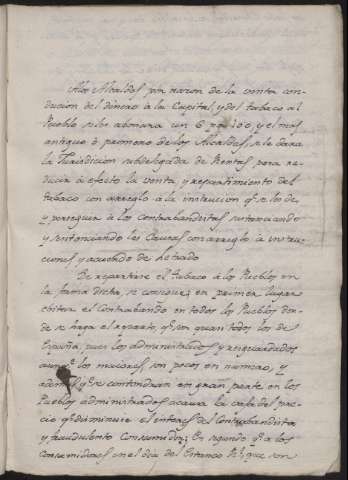 A los Alcaldes por razon de la venta con-
ducion del dinero à la Capital, y del tabaco al
Pueblo se les abonara un 6 por 100, y el mas
antiguo ò primero de los Alcaldes, se le dara
la Jurisdicion subdelegada de Rentas para re-
ducir à efecto la venta y repartimiento del
tabaco con arreglo à la instrucion qe. se les de,
y persegua à los contrabandistas sustanciando
y sentenciando las Causas con arreglo à instruc-
ciones y acuerdo de Letrado
De repartirse el tabaco a los Pueblos en
la forma dicha, se consigue; en primer lugar
evitar el Contrabando en todos los Pueblos don-
de se haga el reparto, qe. son quasi todos los de
España, pues los administrados y resguardados
aunqe. los maiores son pocos en numero, y
ademas qe. se contendran en gran parte en los
Pueblos administrados a causa la baja del pre-
cio qe. disminuie el interes del Contrabandista
y fraudulento Consumidor; En segundo qe. a los
Consumidores en el dia del Estanco Rl. que son